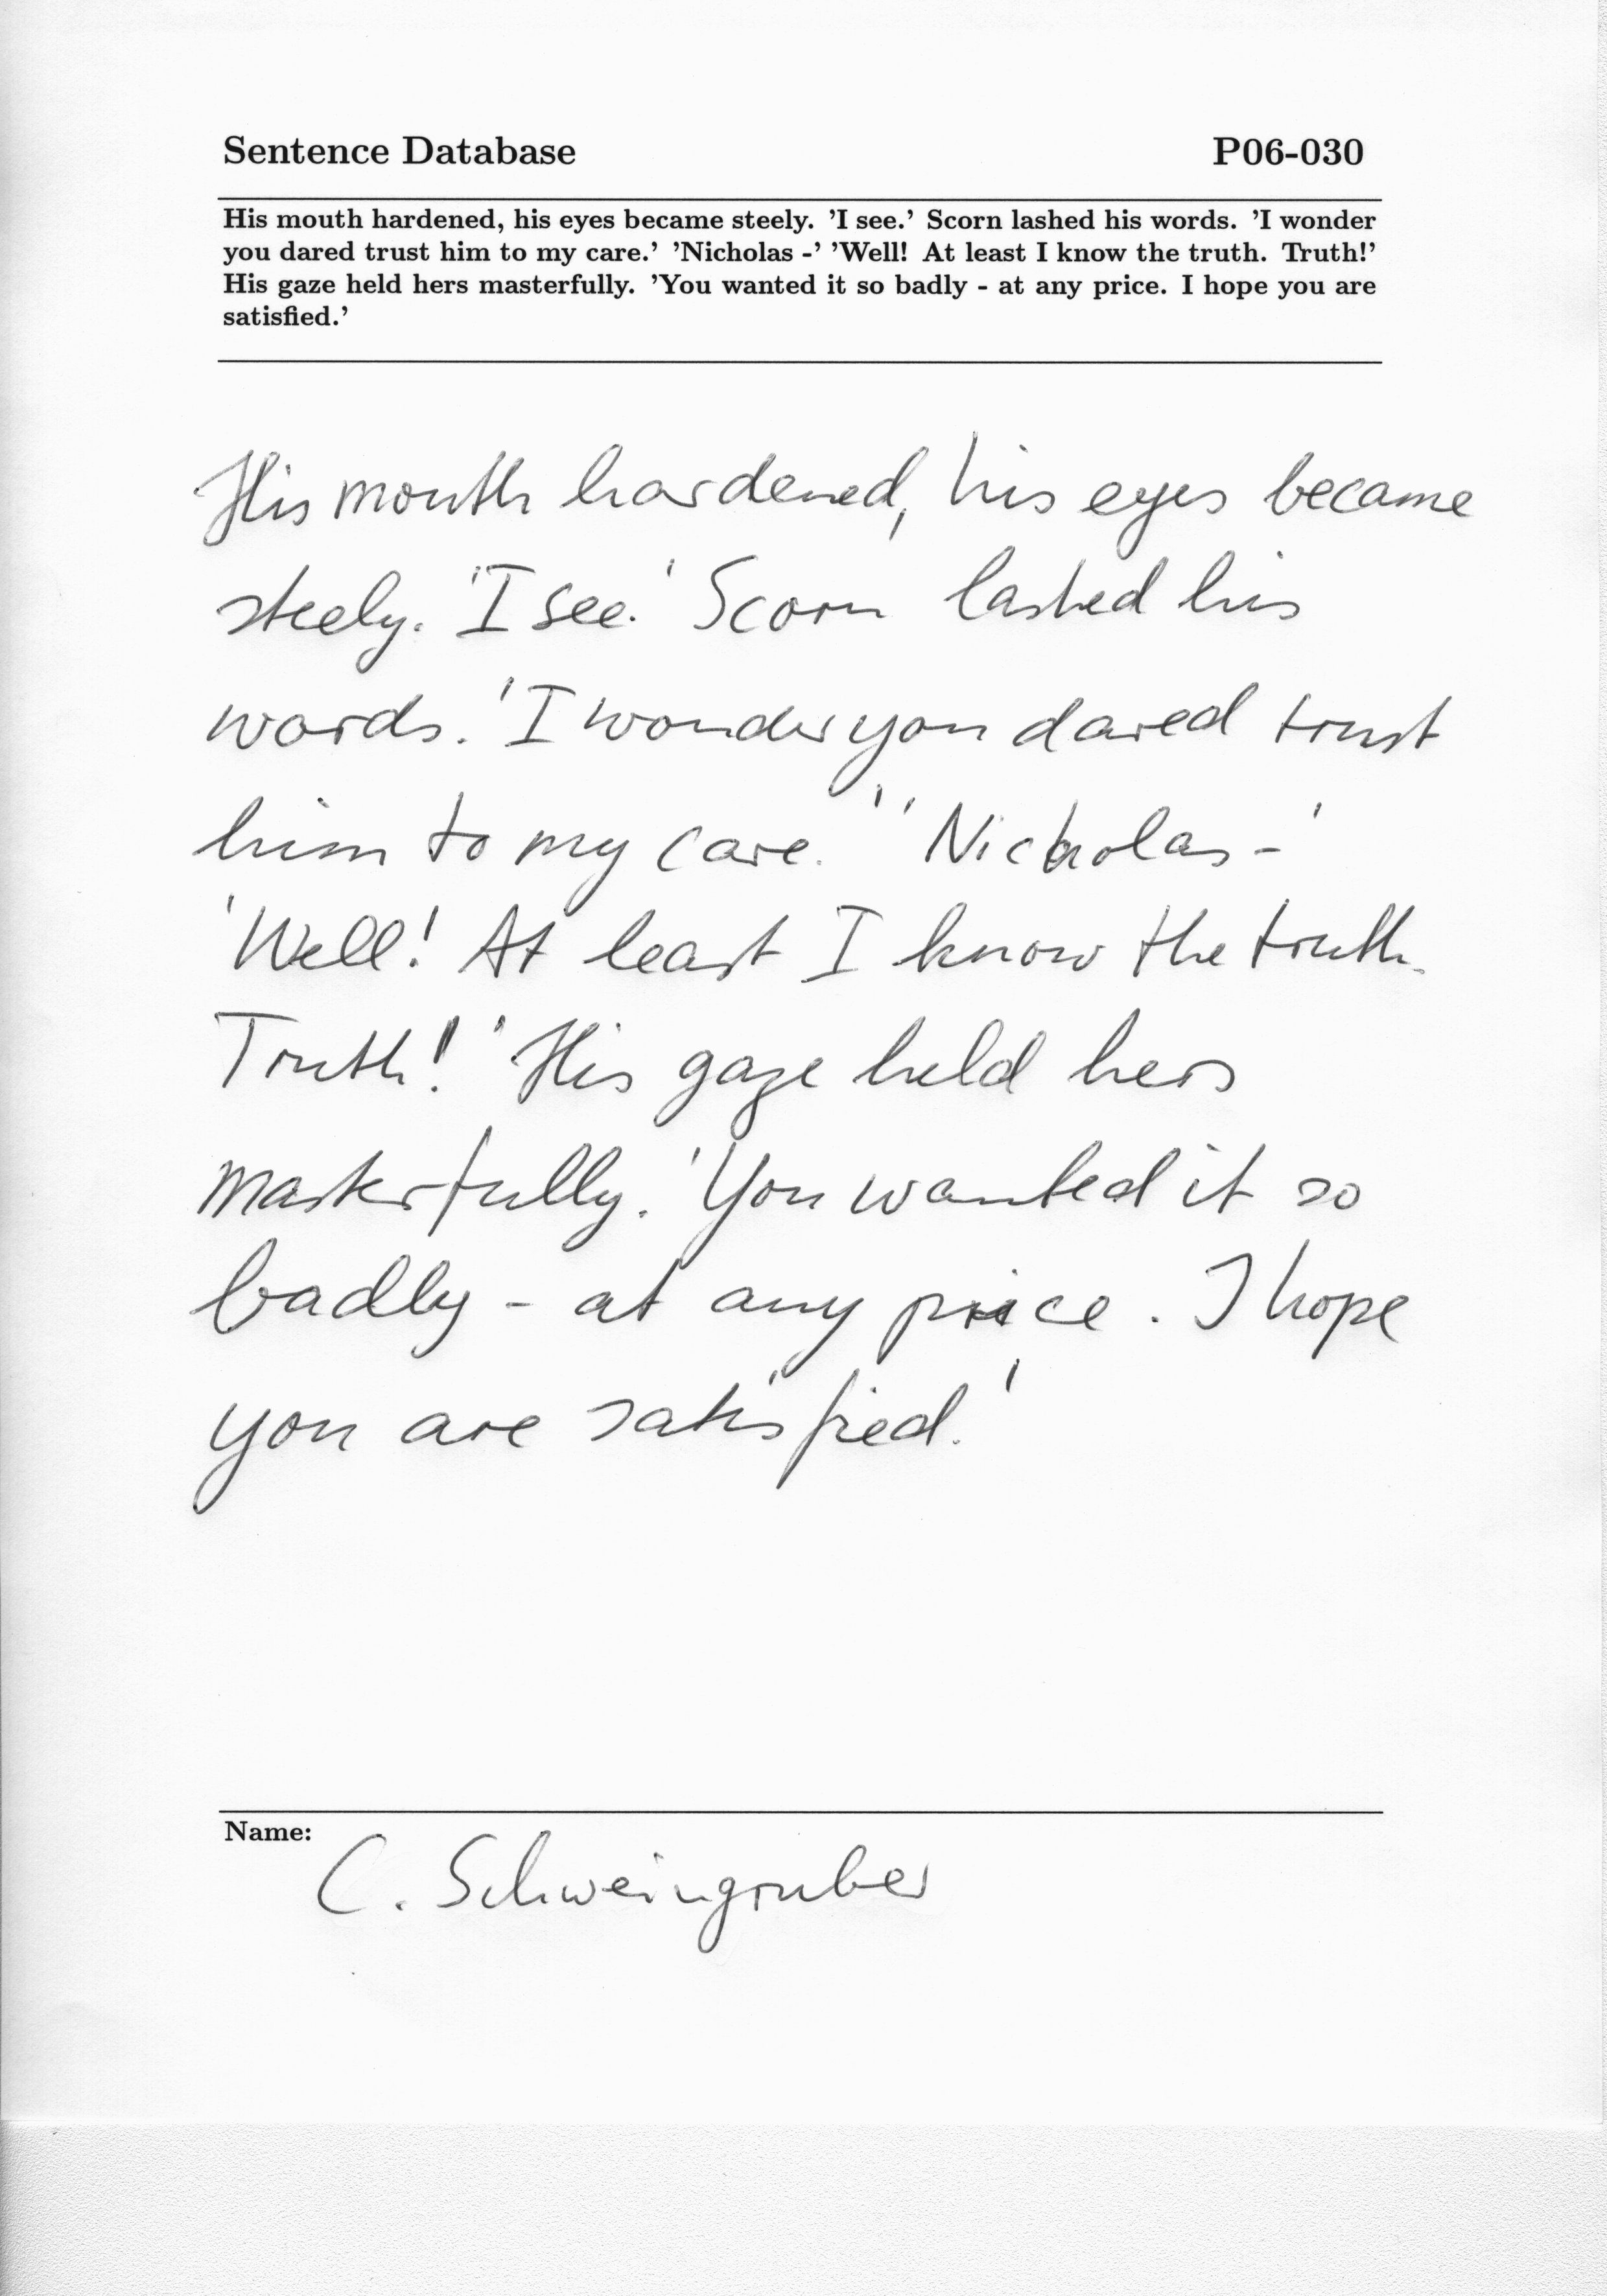 Sentence Database P06-030
His mouth hardened, his eyes became steely. ’I see.’ Scorn lashed his words. ’I wonder
you dared trust him to my care.’ ’Nicholas -’ ’Well! At least I know the truth. Truth!’
His gaze held hers masterfully. ’You wanted it so badly - at any price. I hope you are
satisfied.’
His mouth hardened, his eyes became
steely. 'I see.' Scorn lashed his
words. 'I wonder you dared trust
him to my care.' 'Nicholas -'
'Well! At least I know the truth.
Truth!' His gaze held hers
masterfully. 'You wanted it so
badly - at any price. I hope
you are satisfied.'
Name:
C. Schweingruber